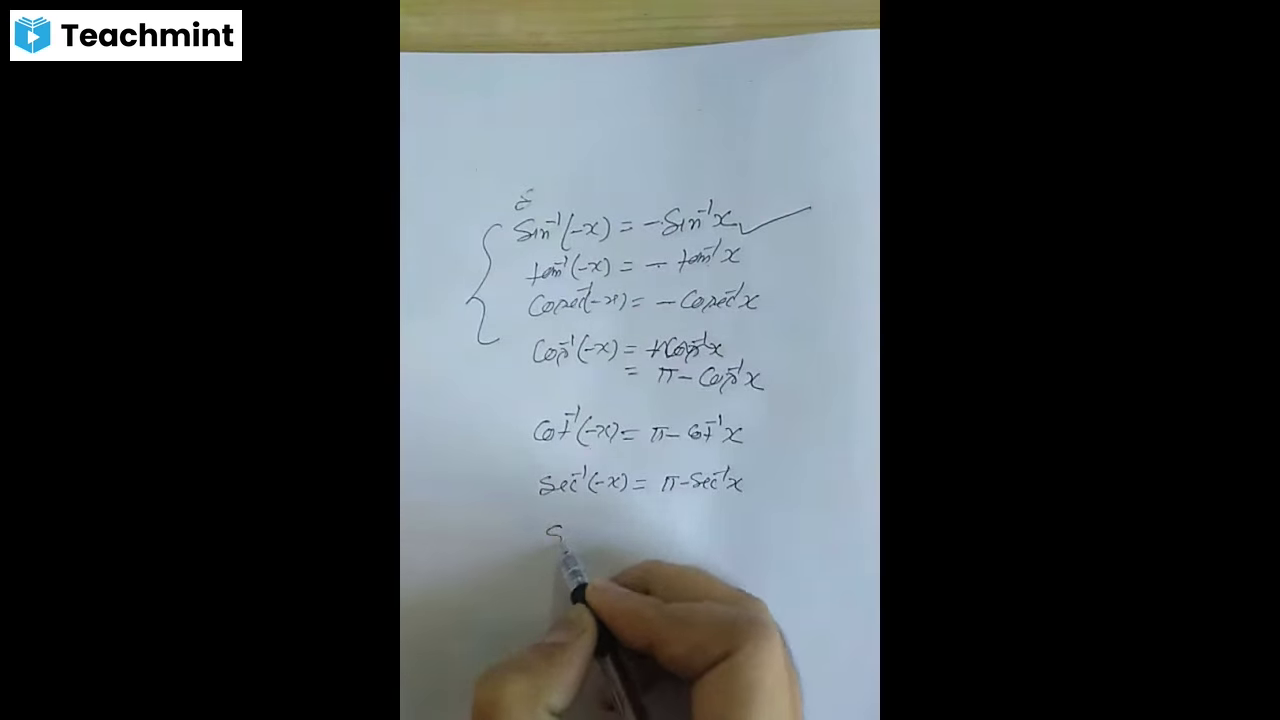 Teachmint
sin⁻¹(-x) = -sin⁻¹x
tan⁻¹(-x) = - tan⁻¹x
Cosec⁻¹(-x) = - Cosec⁻¹x
Cos⁻¹(-x) = +Cos⁻¹x
= π - Cos⁻¹x
Cot⁻¹(-x) = π - Cot⁻¹x
Sec⁻¹(-x) = π - Sec⁻¹x
S